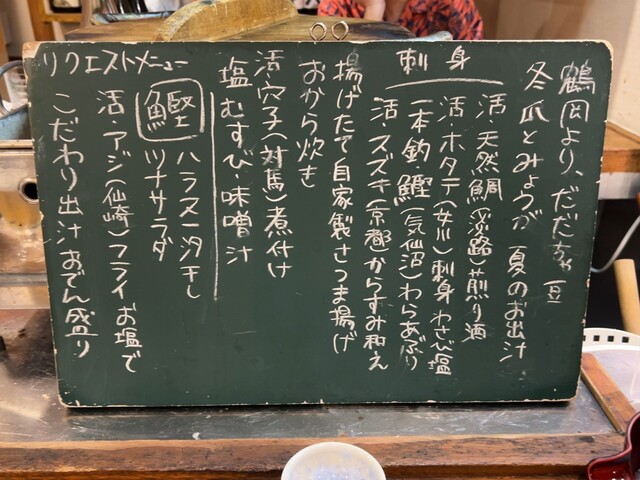 鶴岡より、だだちゃ豆
冬瓜とみょうが 夏のお出汁
刺身
活 天然鯛(淡路)煎り酒
活 ホタテ(女川)刺身 わさび塩
一本釣 鰹(気仙沼)わらあぶり
活 スズキ(京都)からすみ和え
揚げたて自家製さつま揚げ
おから炊き
活 穴子(対馬)煮付け
塩むすび・味噌汁
リクエストメニュー
鰹 ハラス一汐干し
ツナサラダ
活 アジ(仙崎)フライ お塩で
こだわり出汁 おでん盛り